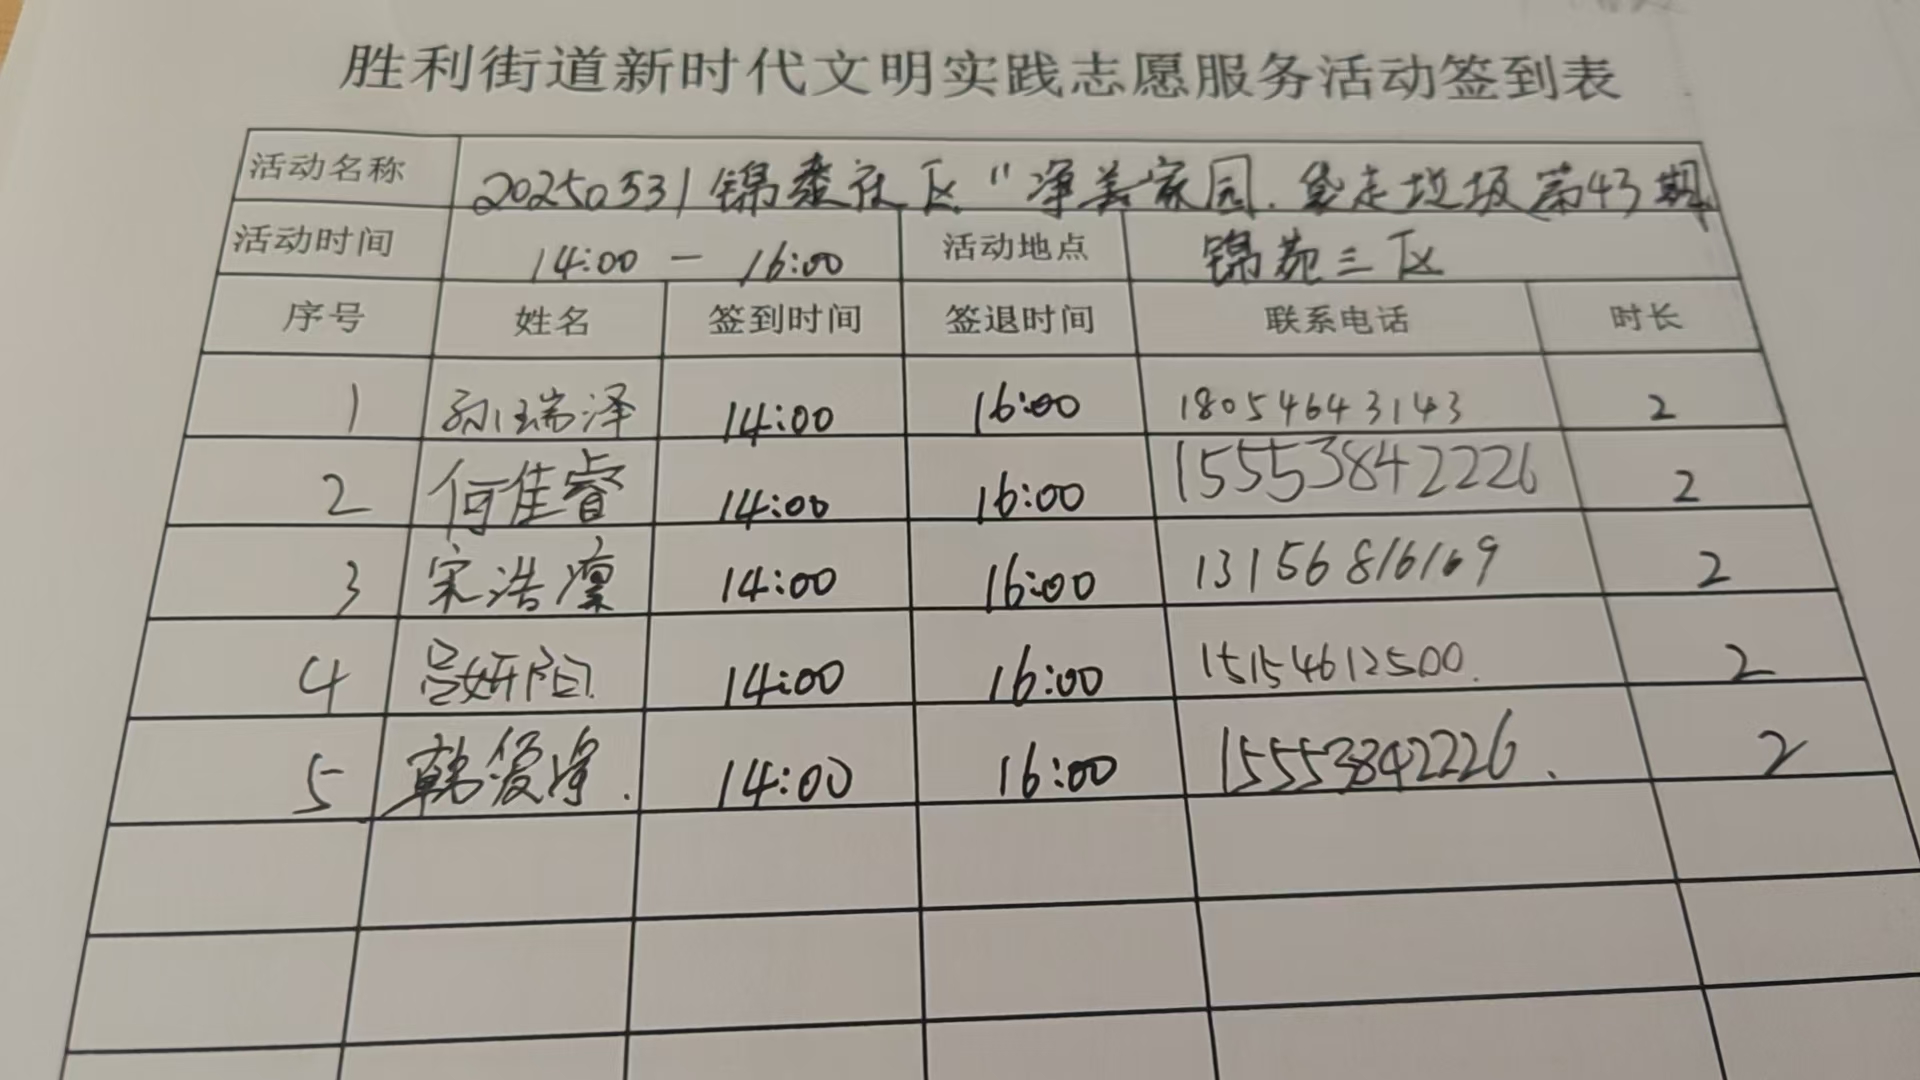 胜利街道新时代文明实践志愿服务活动签到表
活动名称 20250531锦泰社区"净美家园.袋走垃圾第43期
活动时间 14:00 — 16:00 活动地点 锦苑三区
序号 姓名 签到时间 签退时间 联系电话 时长
1 孙瑞泽 14:00 16:00 18054643143 2
2 何佳睿 14:00 16:00 15553842226 2
3 宋浩凛 14:00 16:00 13156816169 2
4 吕妍 14:00 16:00 15154612500. 2
5 韩 14:00 16:00 15553842226. 2